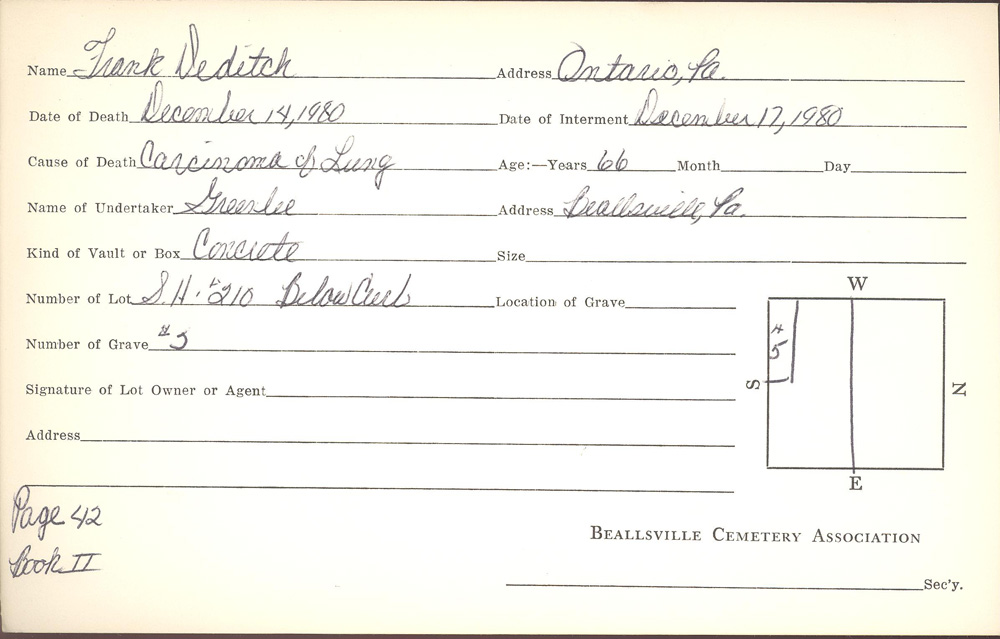 Name Frank Deditch Address Ontario, Pa.
Date of Death December 14, 1980 Date of Interment December 17, 1980
Cause of Death Carcinoma of Lung Age:—Years 66 Month Day
Name of Undertaker Greenlee Address Beallsville, Pa.
Kind of Vault or Box Concrete Size
Number of Lot S.H. #210 Below Curb Location of Grave
W
Number of Grave #5
#5
S N
Signature of Lot Owner or Agent
Address
E
Page 42
Book II
BEALLSVILLE CEMETERY ASSOCIATION
Sec'y.